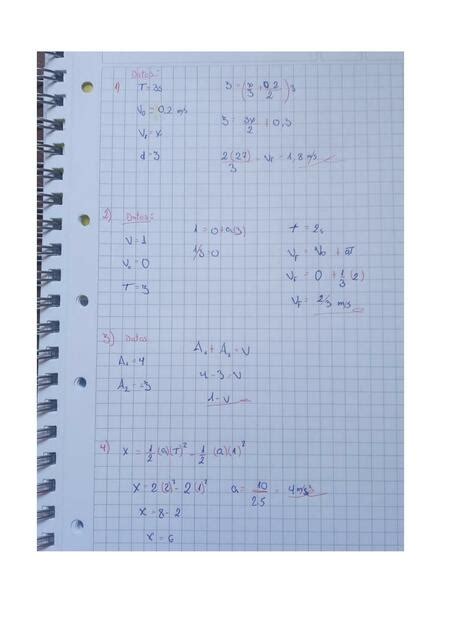 1) Datos:
T = 3s
V₀ = 0,2 m/s
V_f = x
d = 3
3 = (x + 0,2 / 2) 3
3 = 3x/2 + 0,3
2(27)/3 = V_f = 1,8 m/s
2) Datos:
V = 1
V₀ = 0
T = 3
1 = 0 + a(3)
1/3 = a
t = 2s
V_f = V₀ + aT
V_f = 0 + 1/3 (2)
V_f = 2/3 m/s
3) Datos
A₁ = 4
A₂ = -3
A₁ + A₂ = V
4 - 3 = V
1 = V
4) X = 1/2 (a)(T)² - 1/2 (a)(1)²
X = 2(2)² - 2(1)²
X = 8 - 2
X = 6
a = 10/25 = 4 m/s²